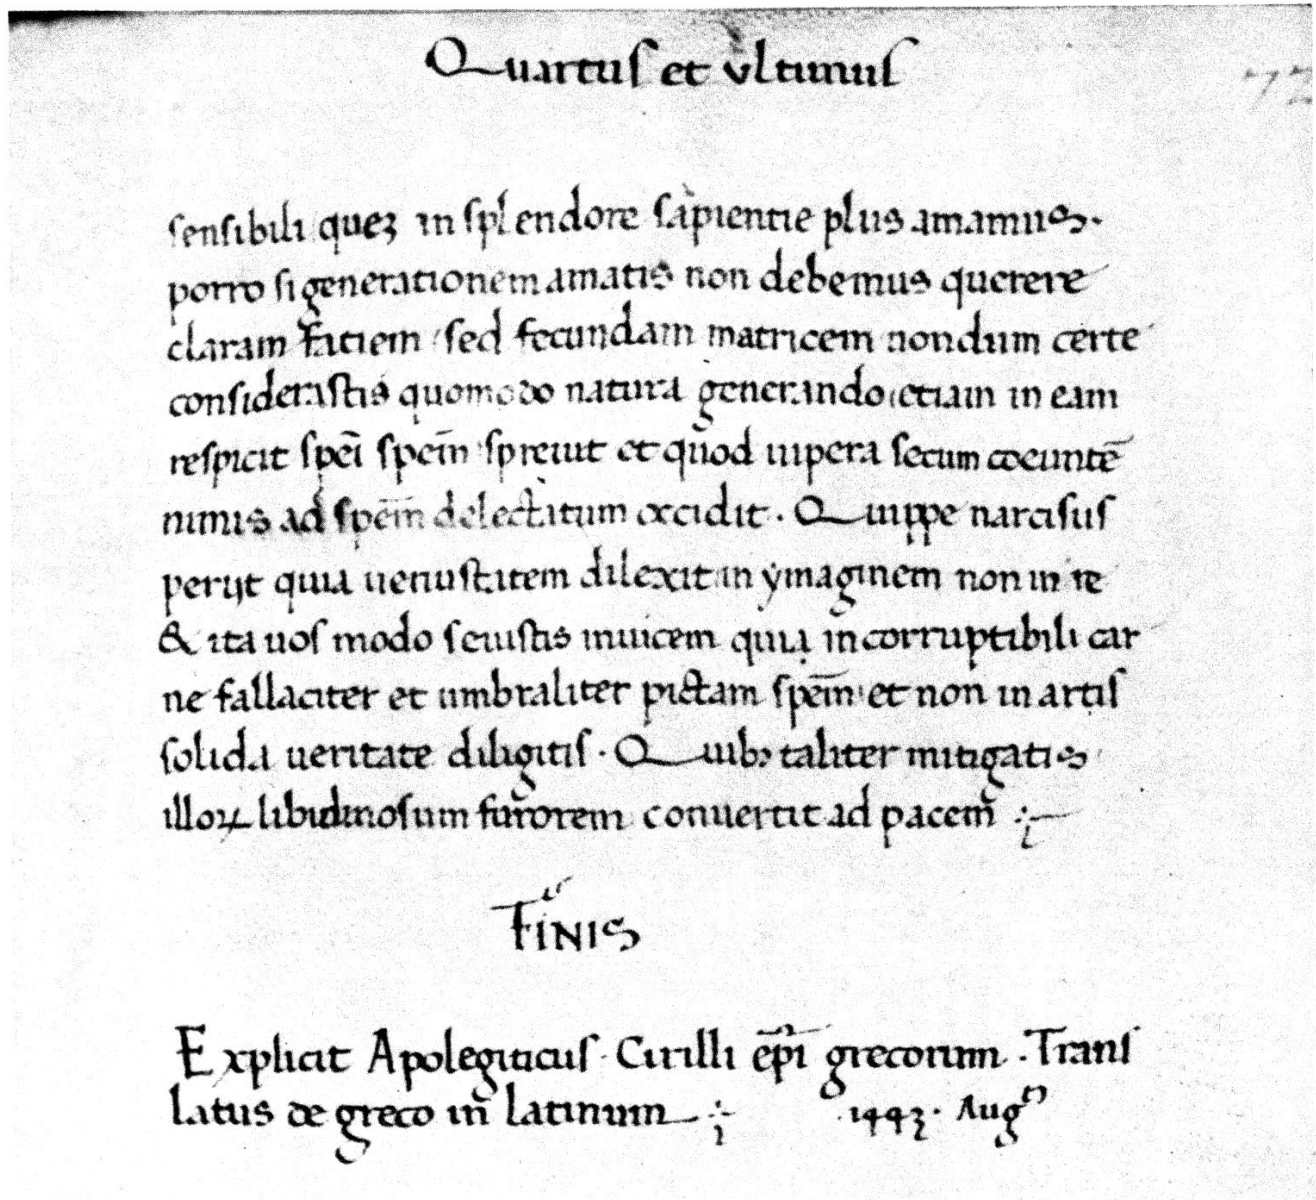 Quartus et ultimus
72
sensibili quez in splendore sapientie plus amamus.
porro si generationem amatis non debemus querere
claram fatiem / sed fecundam matricem nondum certe
considerastis quomodo natura generando etiam in eam
respicit spēi spēm spreuit et quod uipera secum coeuntē
nimis ad spēm delectatum occidit. Quippe narcisus
perijt quia uenustatem dilexit in ymaginem non in re
& ita uos modo seuistis inuicem quia in corruptibili car
ne fallaciter et umbraliter pictam spēm et non in artis
solida ueritate diligitis. Quibꝫ taliter mitigatis
illoꝝ libidinosum furorem conuertit ad pacem
FINIS
Explicit Apolegiticus Cirilli ep̄i grecorum. Trans
latus de greco in latinum .1443. Augo